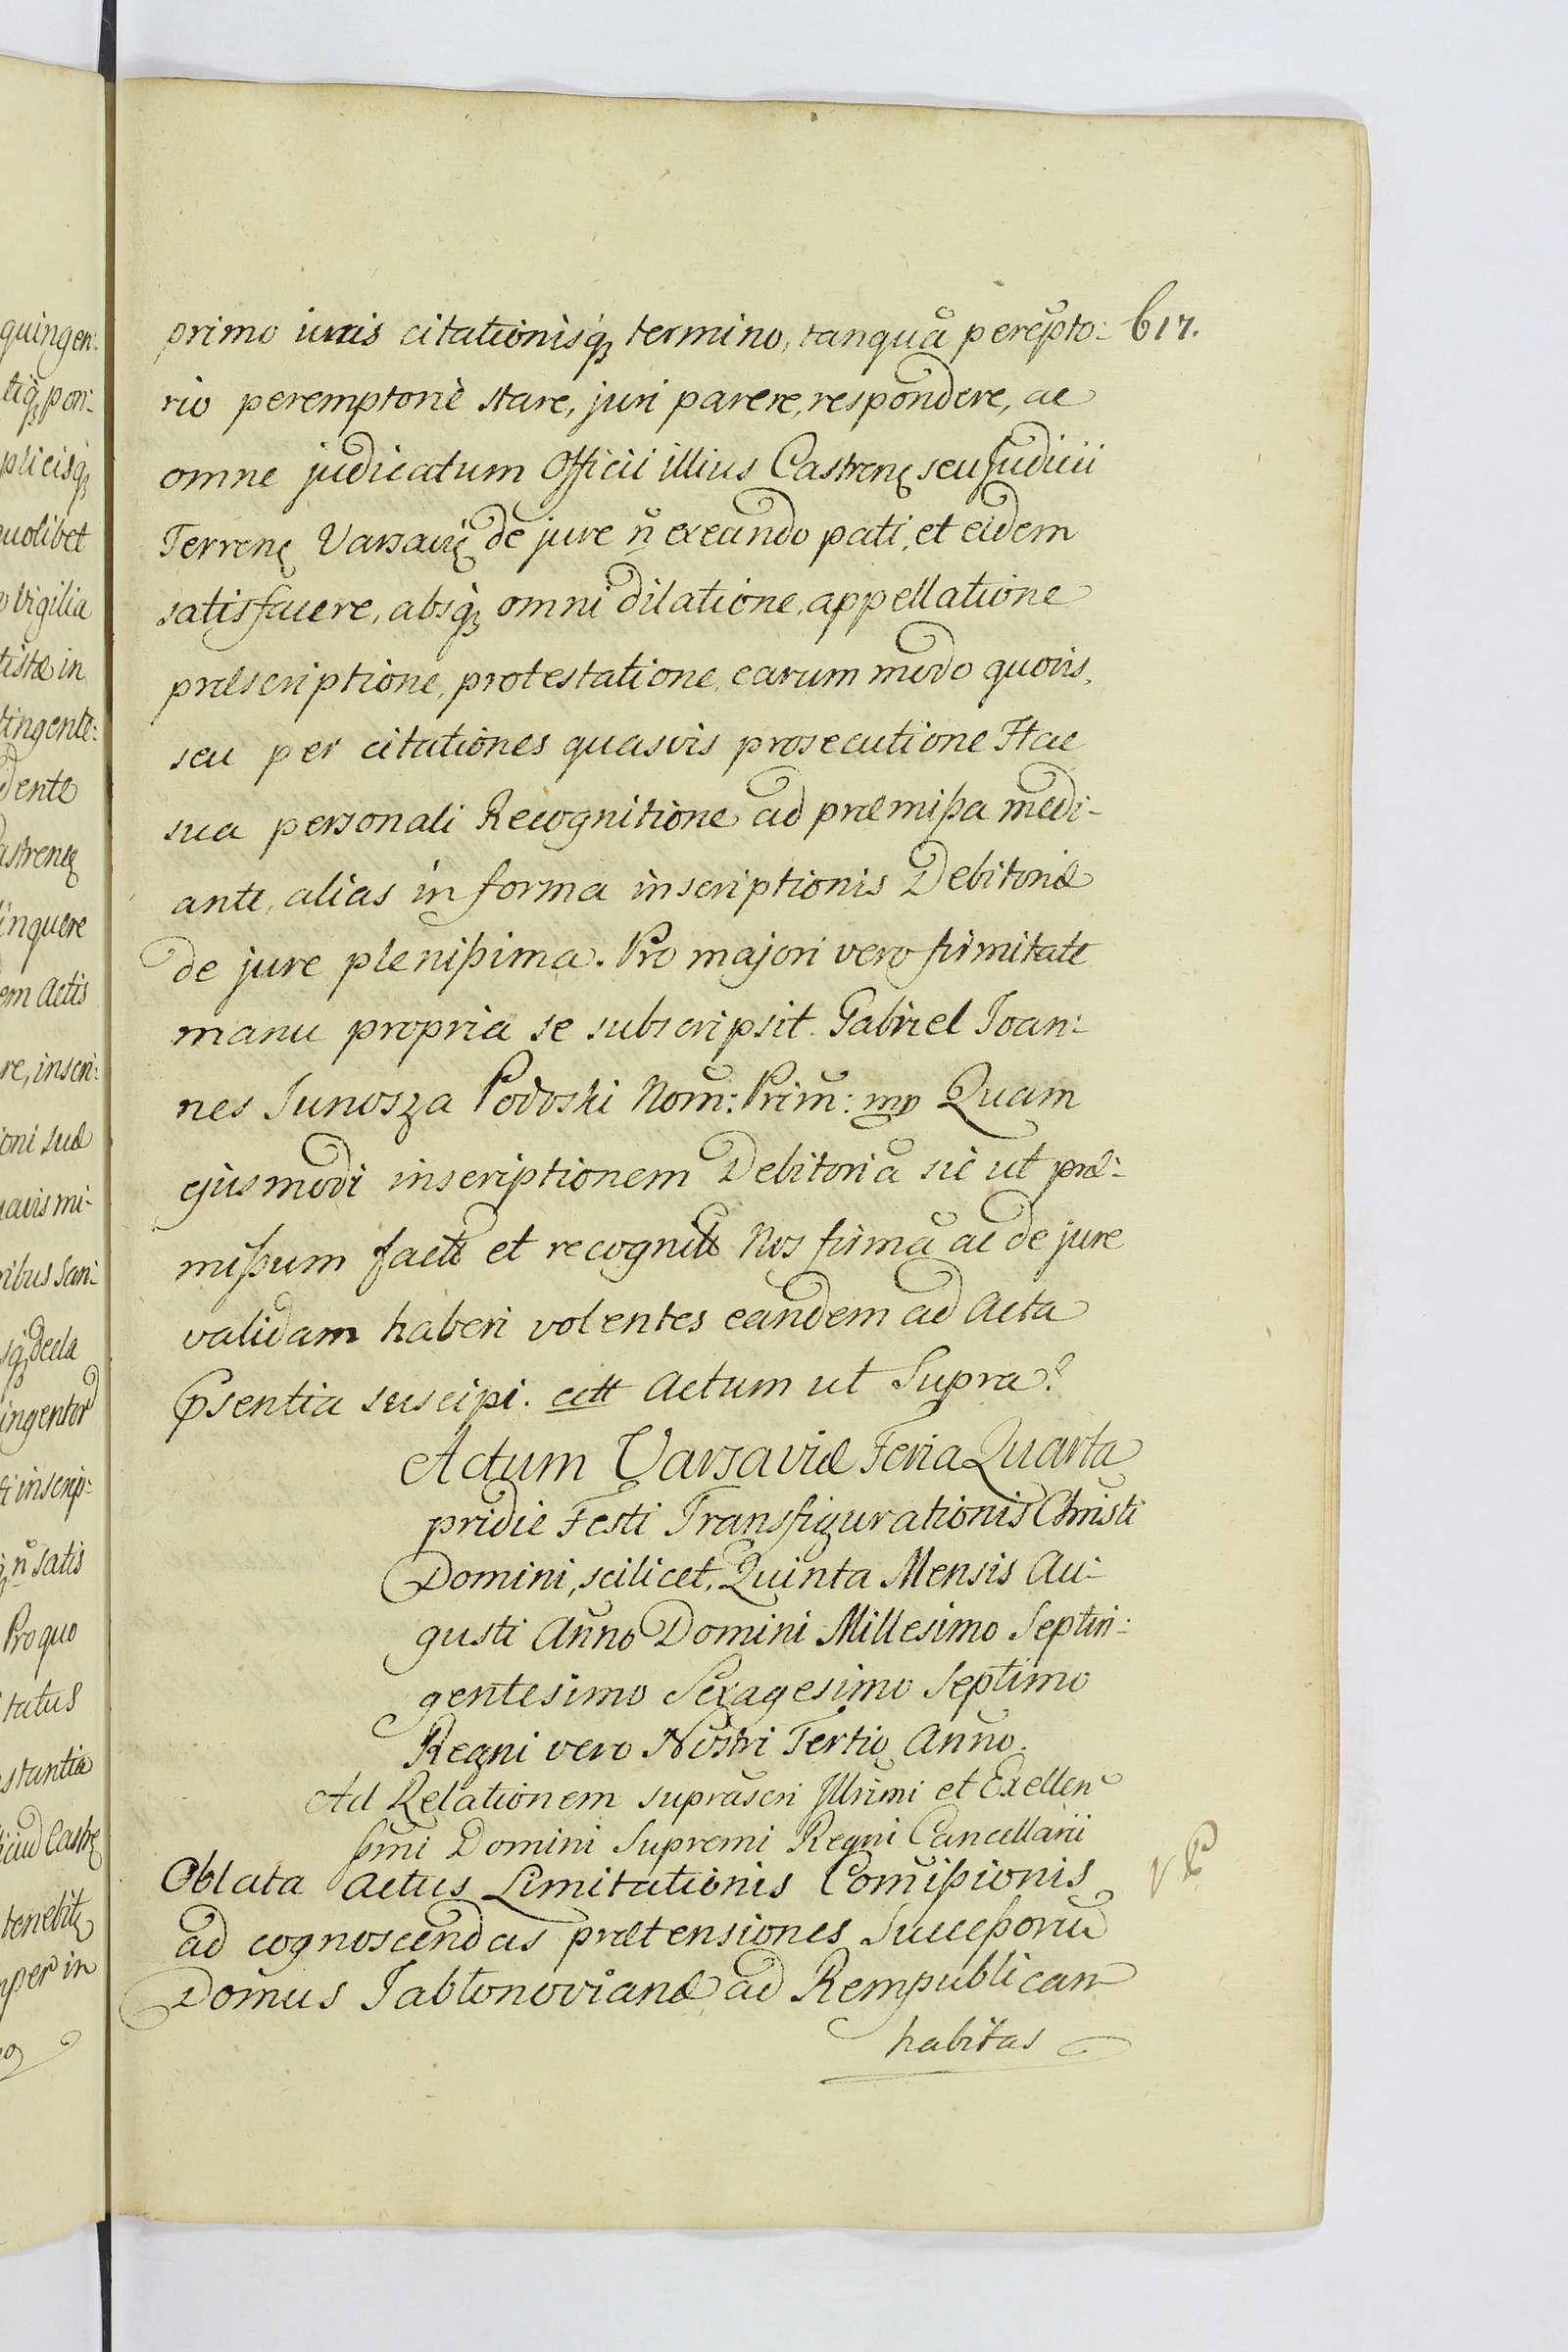 617.
primo iuris citationisq̃ termino, tanquã perẽpto:
rio peremptoriè stare, juri parere, respondere, ac
omne judicatum Officii illius Castrenę seu Judicii
Terrenę Varsavię de jure ñ exeundo pati, et eidem
satisfacere, absq̃ omni dilatione, appellatione
præscriptione, protestatione, earum modo quovis,
seu per citationes quasvis prosecutione Hac
sua personali Recognitione ad præmißa medi-
ante, alias in forma inscriptionis Debitoriæ
de jure plenißima. Pro majori vero firmitate
manu propria se subscripsit. Gabriel Joan:
nes Junosza Podoski Nom̃: Prim̃: mp Quam
ejusmodi inscriptionem Debitoriã sic ut præ:
mißum factã et recognitã Nos firmã ac de jure
validam haberi volentes eandem ad Acta
p̃sentia suscipi. cett Actum ut Supra.
Actum Varsaviæ Feria Quarta
pridie Festi Transfigurationis Christi
Domini, scilicet, Quinta Mensis Au-
gusti Anno Domini Millesimo Septin:
gentesimo Sexagesimo Septimo
Regni vero Nostri Tertio Anno.
Ad Relationem suprascri Illrimi et Exellen
ßmi Domini Supremi Regni Cancellarii
Oblata Actus Limitationis Comißionis
ad cognoscendas prætensiones Succeßorũ
Domus Jabłonovianæ ad Rempublicam
habitas